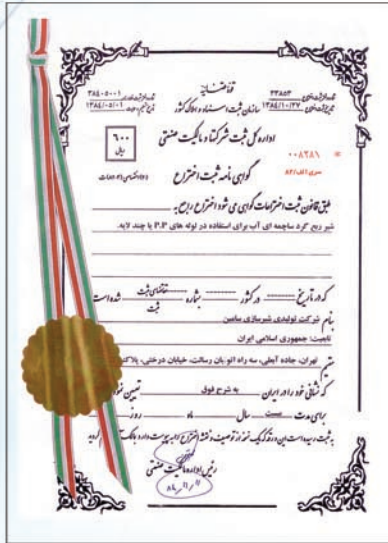 قوه قضائیه
۳۳۸۵۳
۳۸۴۰۵۰۰۱
سازمان ثبت اسناد و املاک کشور
۱۳۸۴/۱۰/۲۷
۱۳۸۴/۰۵/۰۱
اداره کل ثبت شرکتها و مالکیت صنعتی
۶۰۰
ریال
۰۰۸۲۸۱
سری الف/۸۲
گواهی نامه ثبت اختراع
طبق قانون ثبت اختراعات گواهی می شود اختراع راجع به
شیر ربع گرد ساچمه ای آب برای استفاده در لوله های P.P یا چند لایه.
که در تاریخ در کشور بشماره تقاضای ثبت شده است
ثبت
بنام شرکت تولیدی شیرسازی سامین
تابعیت: جمهوری اسلامی ایران
مقیم تهران، جاده آبعلی، سه راه اتوبان رسالت، خیابان درختی، پلاک
که نشانی خود را در ایران به شرح فوق تعیین نموده
برای مدت بیست سال ماه روز
به ثبت رسیده است این ورقه که یک نسخه از توصیف و نقشه اختراع را به پیوست دارد
رئیس اداره مالکیت صنعتی